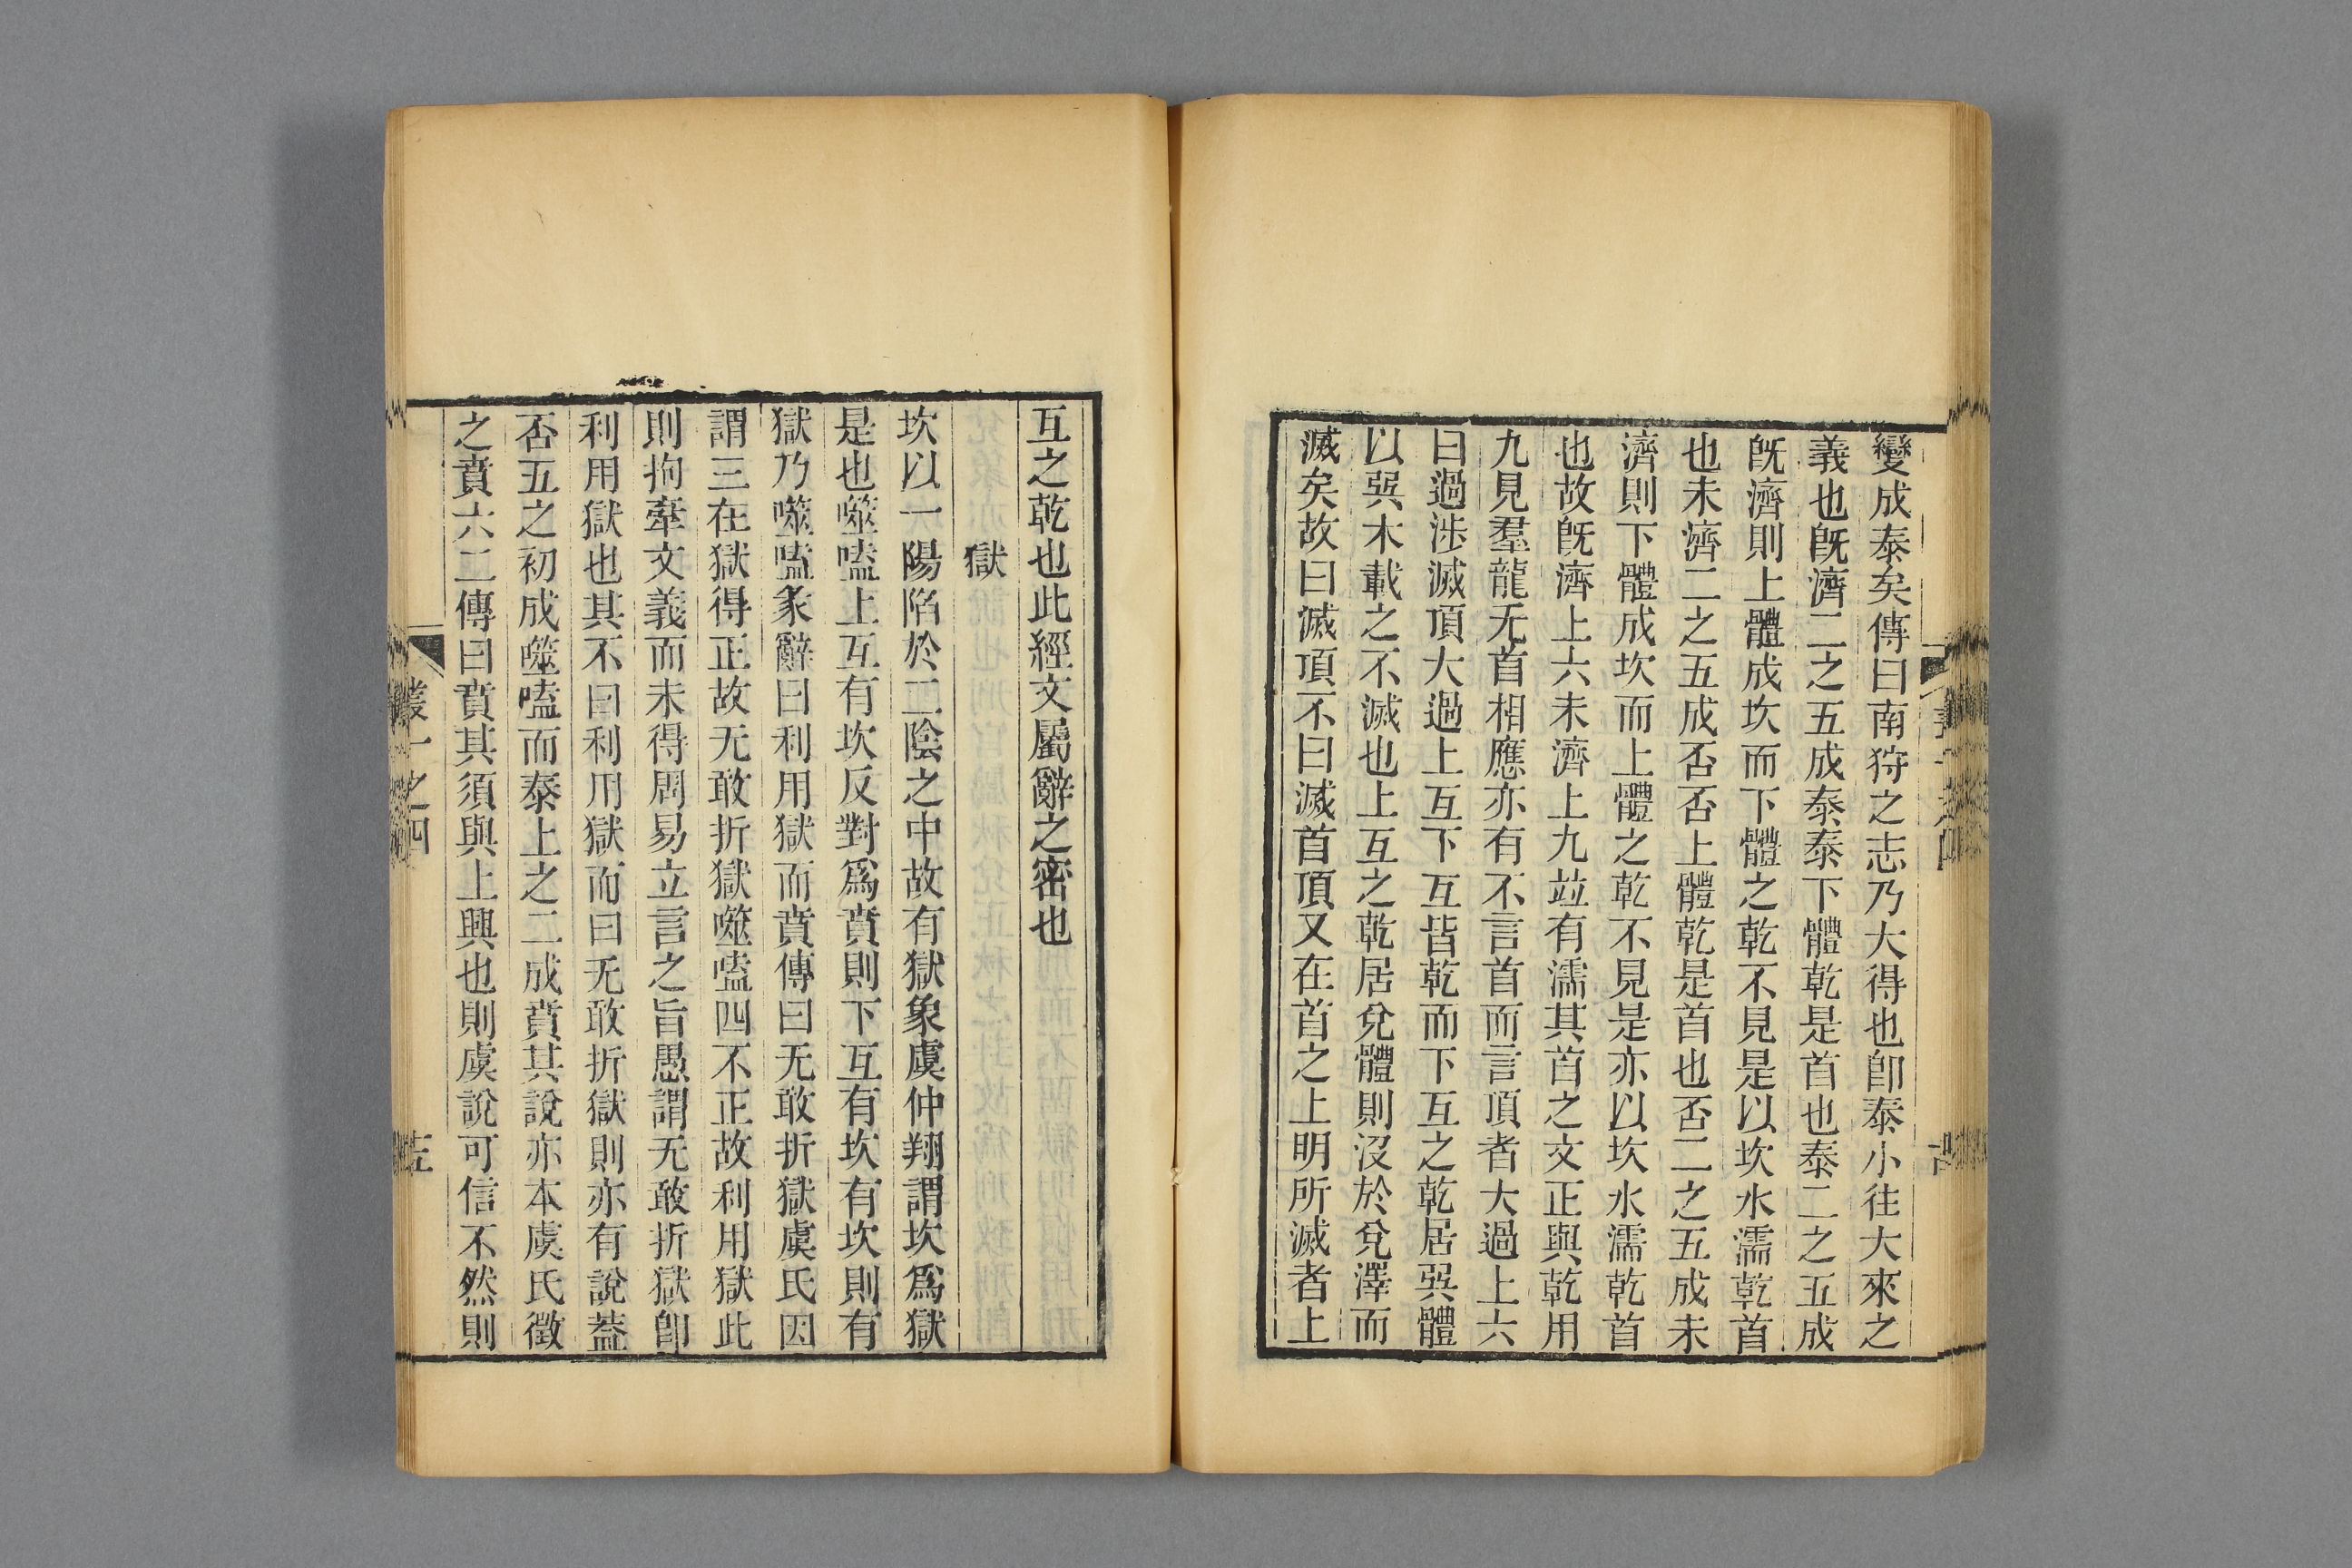 變成泰矣傳曰南狩之志乃大得也卽泰小往大來之
義也旣濟二之五成泰泰下體乾是首也泰二之五成
旣濟則上體成坎而下體之乾不見是以坎水濡乾首
也未濟二之五成否否上體乾是首也否二之五成未
濟則下體成坎而上體之乾不見是亦以坎水濡乾首
也故旣濟上六未濟上九竝有濡其首之文正與乾用
九見羣龍无首相應亦有不言首而言頂者大過上六
曰過涉滅頂大過上互下互皆乾而下互之乾居巽體
以巽木載之不滅也上互之乾居兌體則沒於兌澤而
滅矣故曰滅頂不曰滅首頂又在首之上明所滅者上
互之乾也此經文屬辭之密也
獄
坎以一陽陷於二陰之中故有獄象虞仲翔謂坎爲獄
是也噬嗑上互有坎反對爲賁則下互有坎有坎則有
獄乃噬嗑彖辭曰利用獄而賁傳曰无敢折獄虞氏因
謂三在獄得正故无敢折獄噬嗑四不正故利用獄此
則拘牽文義而未得周易立言之旨愚謂无敢折獄卽
利用獄也其不曰利用獄而曰无敢折獄則亦有說葢
否五之初成噬嗑而泰上之二成賁其說亦本虞氏徵
之賁六二傳曰賁其須與上興也則虞說可信不然則
叢一之四